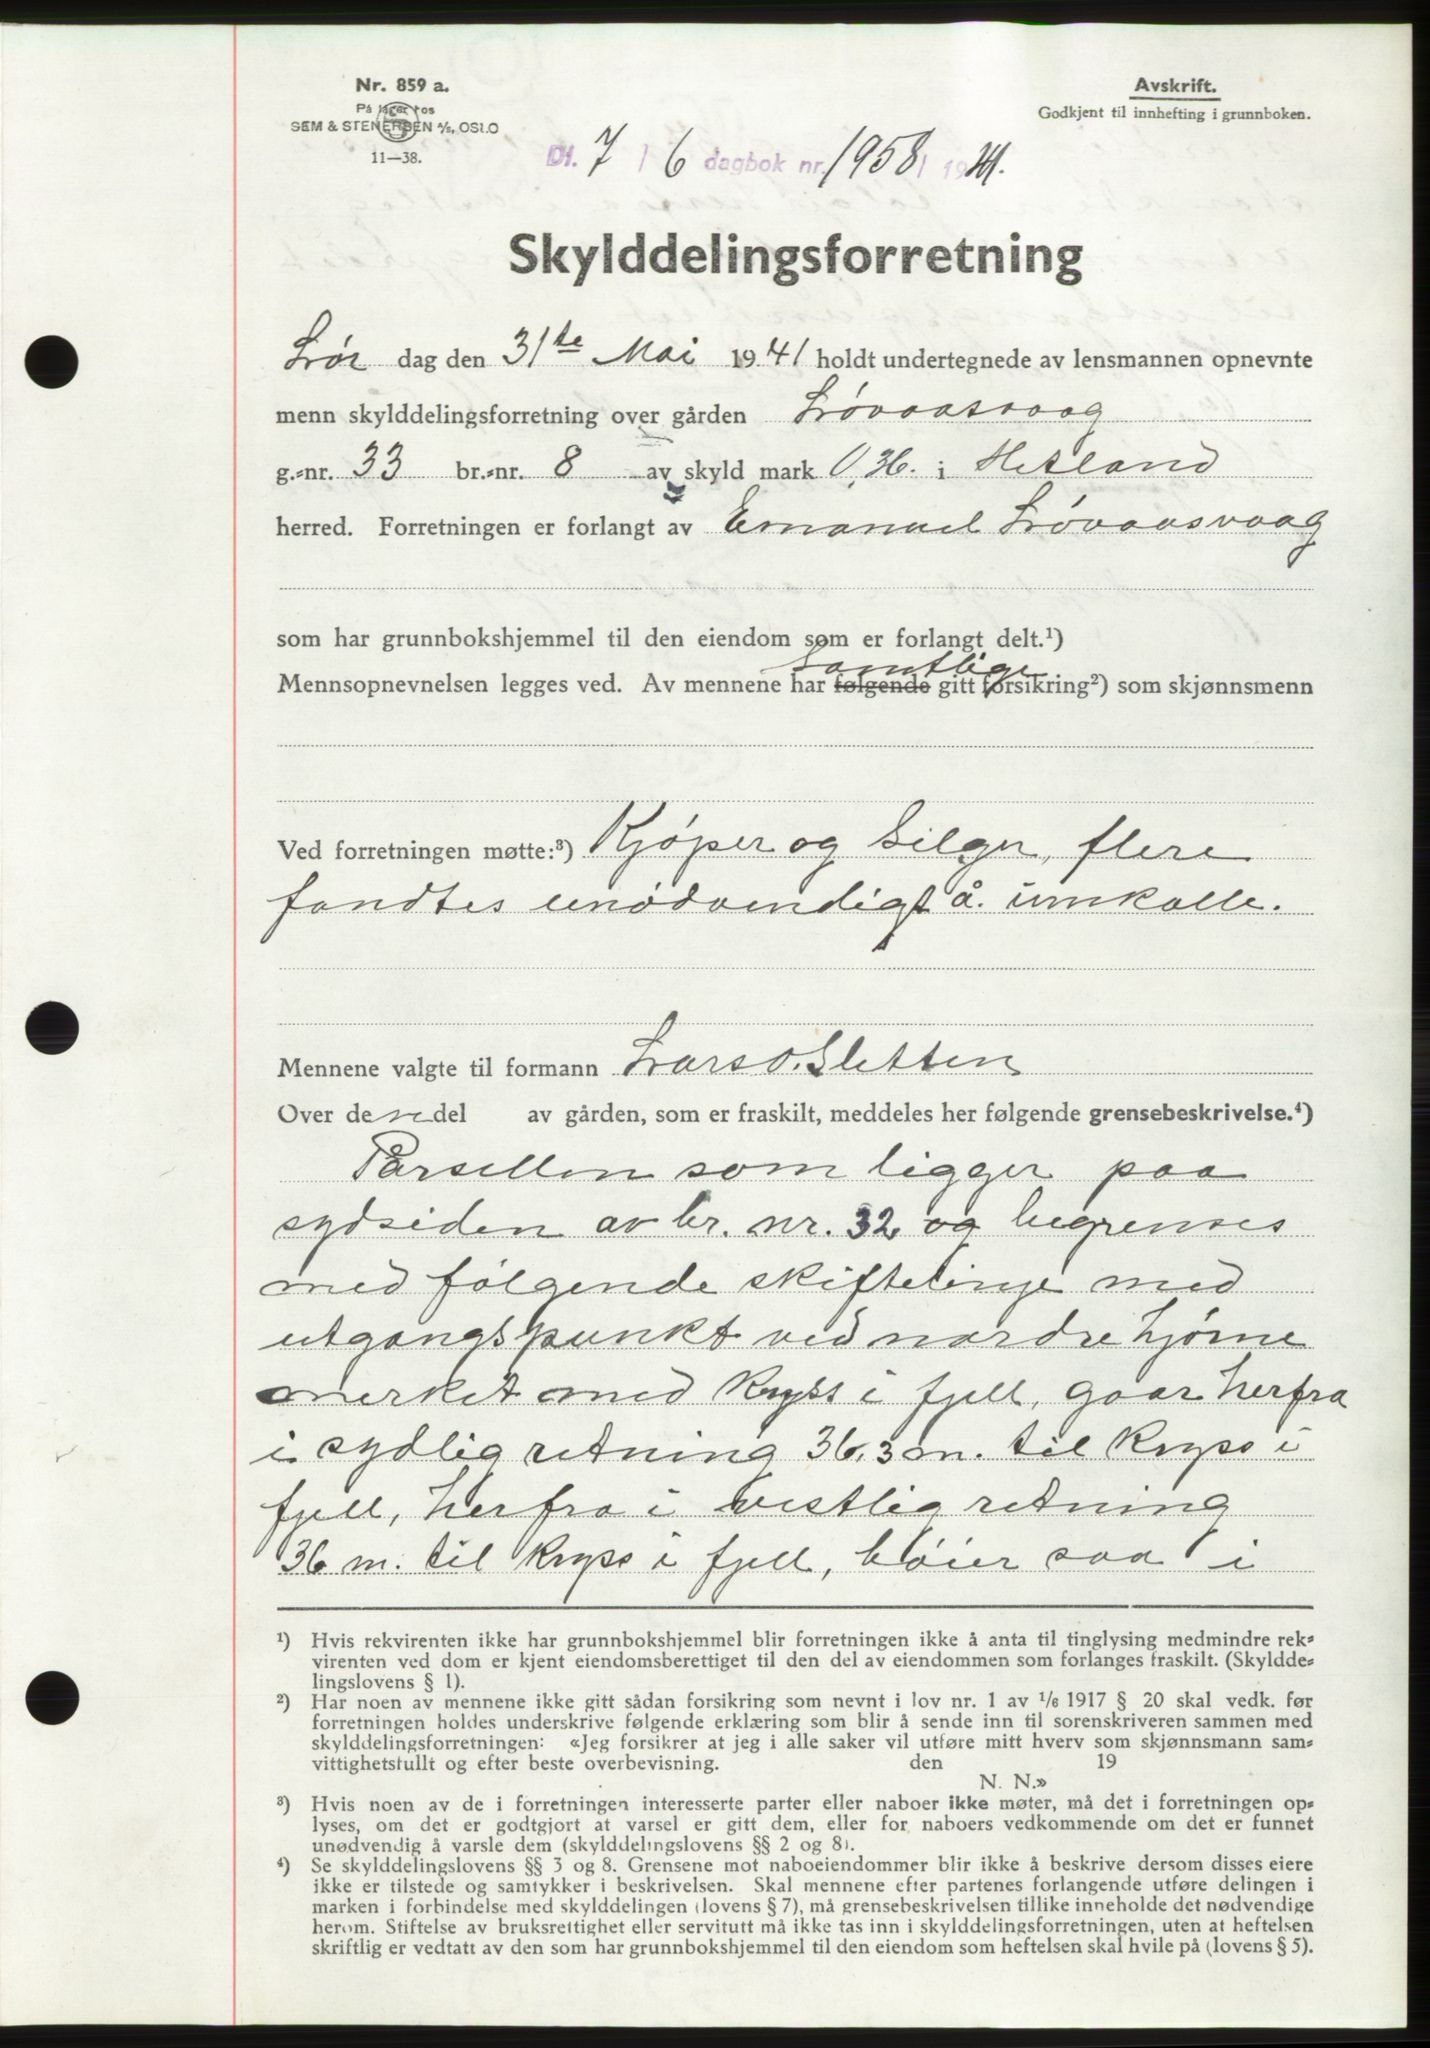 Nr. 859 a.
På lager hos
SEM & STENERSEN A/S, OSLO
11—38.
Avskrift.
Godkjent til innhefting i grunnboken.
Dt. 7 / 6 dagbok nr. 1958 / 1941.
Skylddelingsforretning
Lør dag den 31te Mai 1941 holdt undertegnede av lensmannen opnevnte
menn skylddelingsforretning over gården Løvaasvaag
g.=nr. 33 br.=nr. 8 av skyld mark 0,36. i Hetland
herred. Forretningen er forlangt av Emanuel Løvaasvaag
som har grunnbokshjemmel til den eiendom som er forlangt delt.¹)
samtlige
Mennsopnevnelsen legges ved. Av mennene har følgende gitt forsikring²) som skjønnsmenn
Ved forretningen møtte:³) Kjøper og Selger, flere
fandtes unødvendigt å innkalle.
Mennene valgte til formann Lars O. Sletten
Over denne del av gården, som er fraskilt, meddeles her følgende grensebeskrivelse.⁴)
Parsellen som ligger paa
sydsiden av br. nr. 32 og begrenses
med følgende skiftelinje med
utgangspunkt ved nordre hjørne
merket med kryss i fjell, gaar herfra
i sydlig retning 36,3 m. til kryss i
fjell, herfra i vestlig retning
36 m. til kryss i fjell, bøier saa i
¹) Hvis rekvirenten ikke har grunnbokshjemmel blir forretningen ikke å anta til tinglysing medmindre rek=
virenten ved dom er kjent eiendomsberettiget til den del av eiendommen som forlanges fraskilt. (Skyldde=
lingslovens § 1).
²) Har noen av mennene ikke gitt sådan forsikring som nevnt i lov nr. 1 av 1/6 1917 § 20 skal vedk. før
forretningen holdes underskrive følgende erklæring som blir å sende inn til sorenskriveren sammen med
skylddelingsforretningen: «Jeg forsikrer at jeg i alle saker vil utføre mitt hverv som skjønnsmann sam=
vittighetsfullt og efter beste overbevisning. den 19
N. N.»
³) Hvis noen av de i forretningen interesserte parter eller naboer ikke møter, må det i forretningen op=
lyses, om det er godtgjort at varsel er gitt dem, eller for naboers vedkommende om det er funnet
unødvendig å varsle dem (skylddelingslovens §§ 2 og 8).
⁴) Se skylddelingslovens §§ 3 og 8. Grensene mot naboeiendommer blir ikke å beskrive dersom disses eiere
ikke er tilstede og samtykker i beskrivelsen. Skal mennene efter partenes forlangende utføre delingen i
marken i forbindelse med skylddelingen (lovens § 7), må grensebeskrivelsen tillike inneholde det nødvendige
herom. Stiftelse av bruksrettighet eller servitutt må ikke tas inn i skylddelingsforretningen, uten at heftelsen
skriftlig er vedtatt av den som har grunnbokshjemmel til den eiendom som heftelsen skal hvile på (lovens § 5).